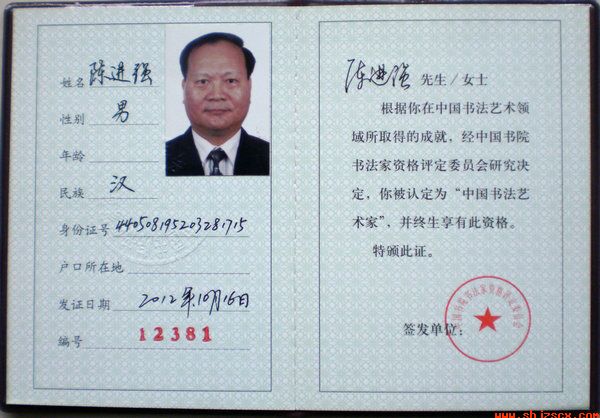 姓名 陈进强
性别 男
年龄
民族 汉
身份证号 440508195203281715
户口所在地
发证日期 2012年10月16日
编号 12381
陈进强 先生/女士
根据你在中国书法艺术领
域所取得的成就，经中国书院
书法家资格评定委员会研究决
定，你被认定为“中国书法艺
术家”，并终生享有此资格。
特颁此证。
签发单位：
中国书院书法家资格评定委员会